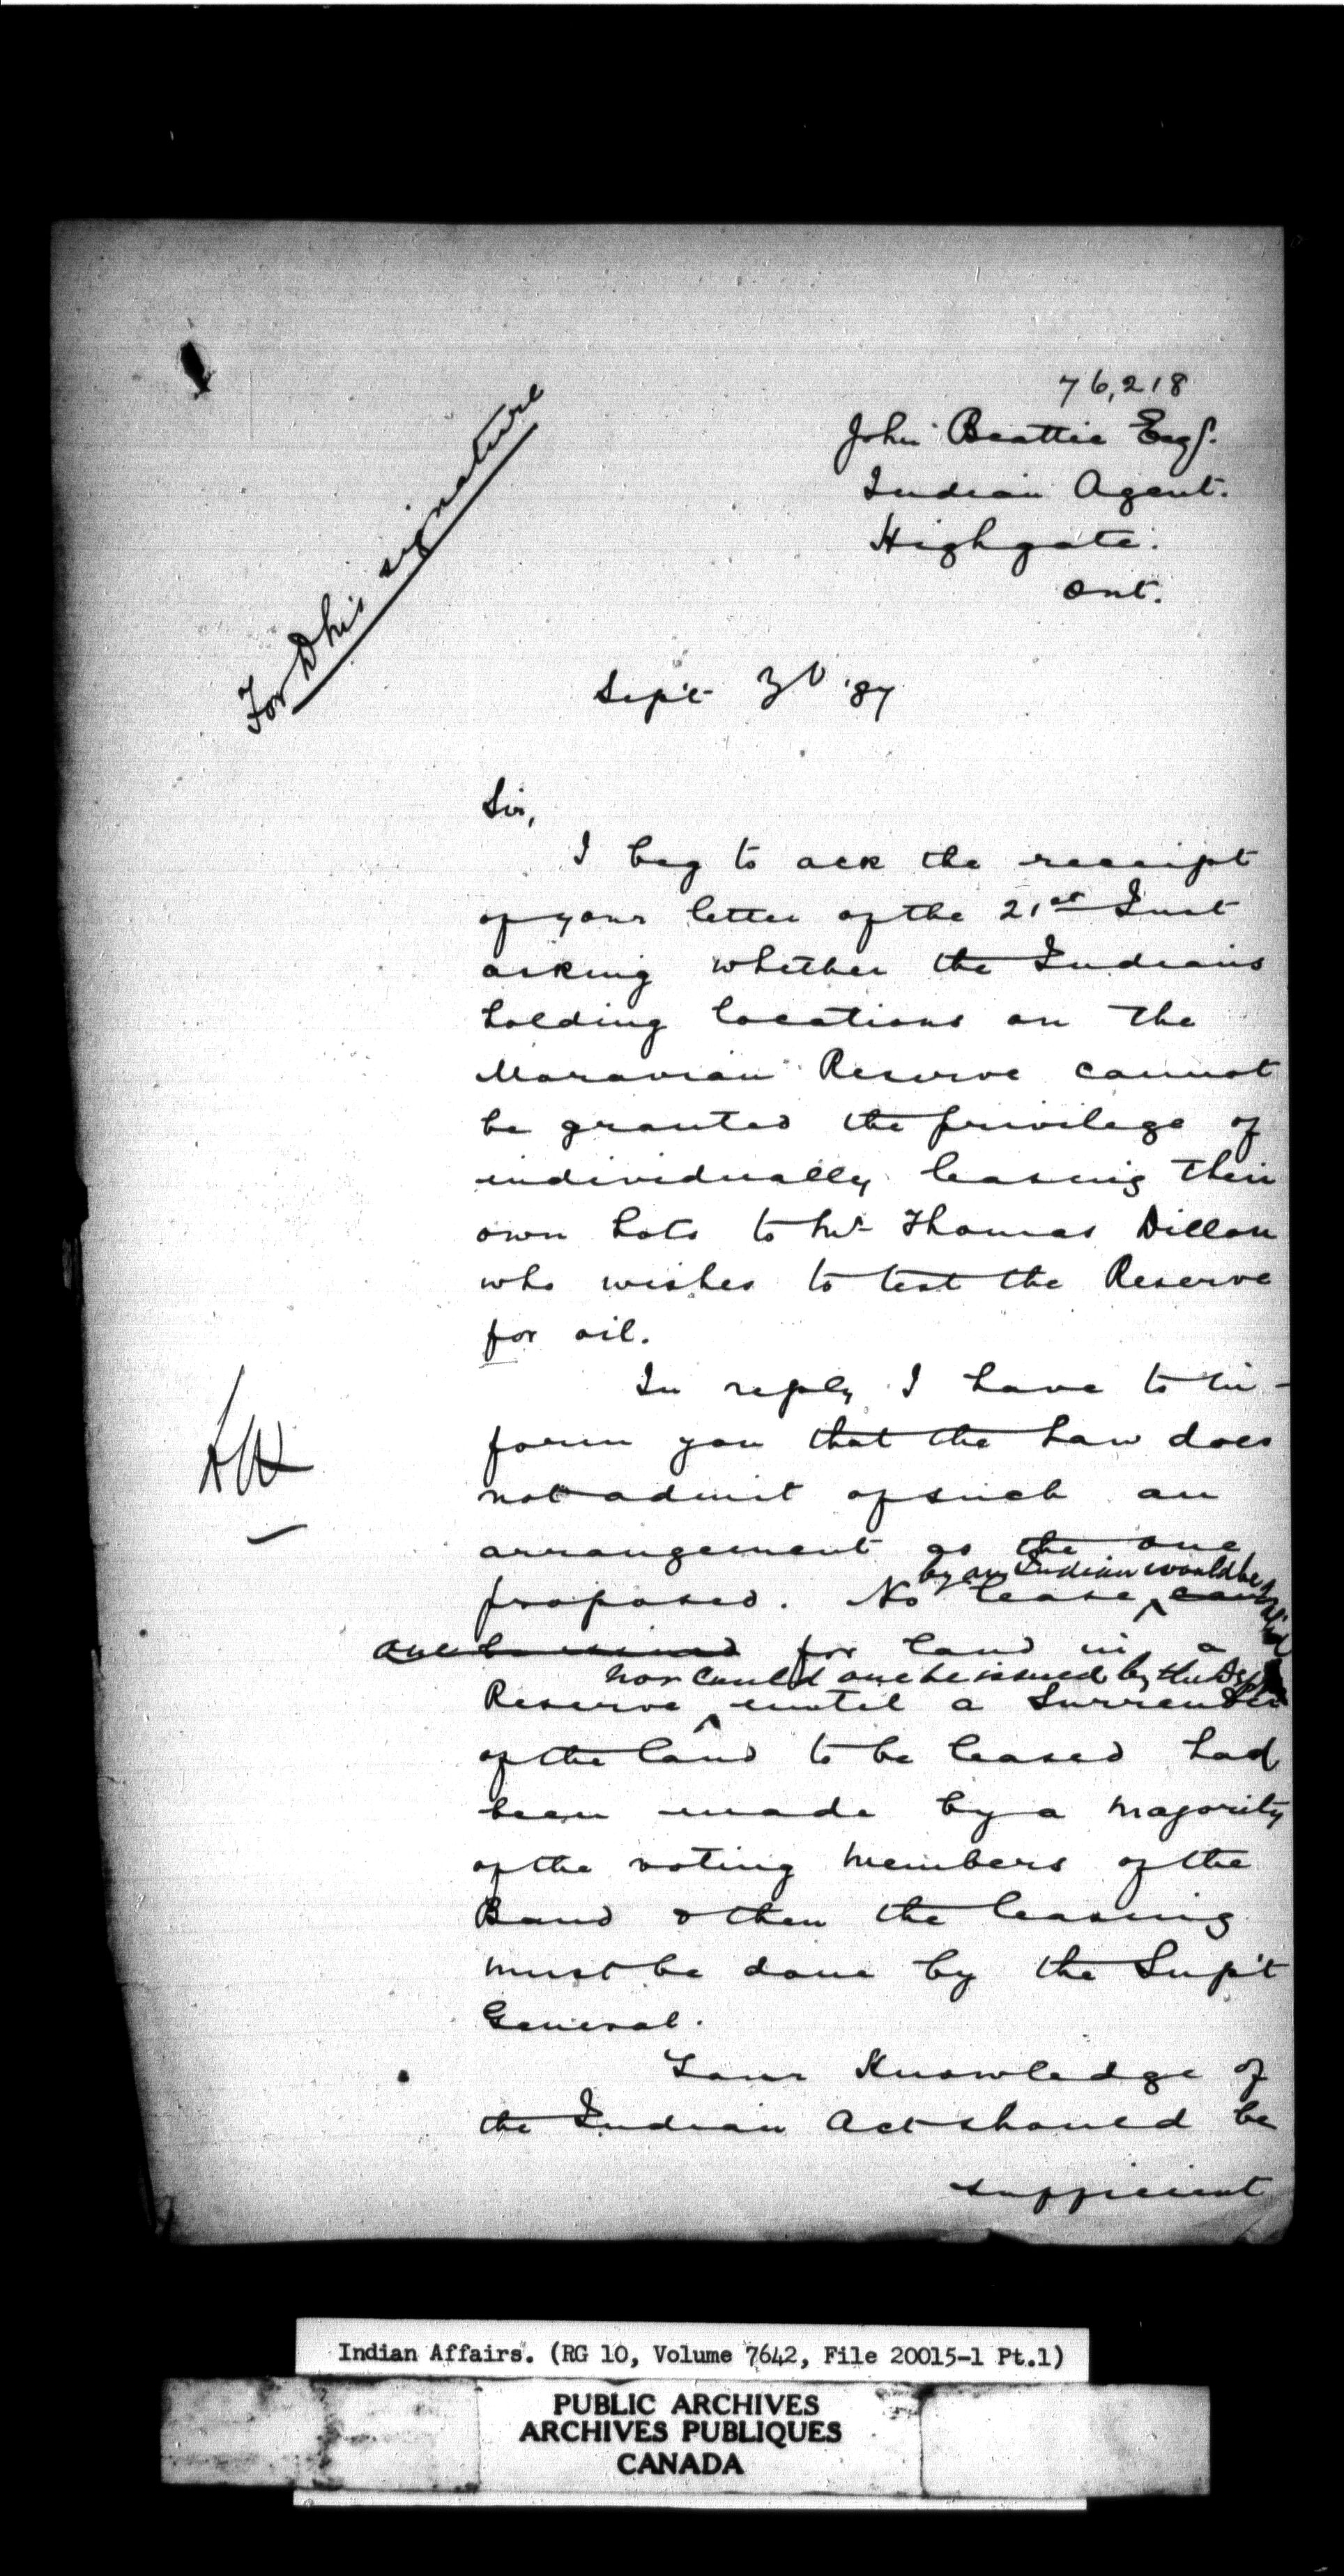 76,218
John Beattie Esq.
Indian Agent.
Highgate.
Ont.
For D his signature
Sept 30 '87
Sir,
I beg to ack the receipt
of your letter of the 21st Inst
asking whether the Indians
holding locations on the
Moravian Reserve cannot
be granted the privilege of
individually leasing their
own Lots to Mr Thomas Dillon
who wishes to test the Reserve
for oil.
In reply I have to in-
form you that the Law does
not admit of such an
arrangement as the one
by an Indian would be valid
proposed. No lease ^ can
be issued for land in a
nor could one be issued by the Dept
Reserve ^ until a Surrender
of the land to be leased had
been made by a majority
of the voting members of the
Band & then the leasing
must be done by the Supt
General.
Your Knowledge of
the Indian Act should be
sufficient
Indian Affairs. (RG 10, Volume 7642, File 20015-1 Pt.1)
PUBLIC ARCHIVES
ARCHIVES PUBLIQUES
CANADA